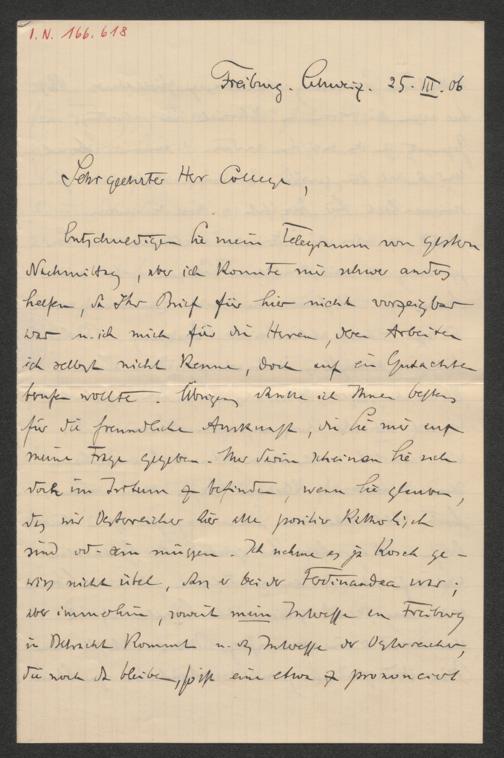 I.N. 166.618
Freiburg. Schweiz. 25. III. 06
Sehr geehrter Herr College,
Entschuldigen Sie mein Telegramm von gestern
Nachmittag, aber ich konnte mir schwer anders
helfen, da Ihr Brief für hier nicht vorzeigbar
war u. ich mich für die Herren, deren Arbeiten
ich selbst nicht kenne, doch auf ein Gutachten
berufen wollte. Übrigens danke ich Ihnen bestens
für die freundliche Auskunft, die Sie mir auf
meine Frage gegeben. Nur darin scheinen Sie sich
doch im Irrtum zu befinden, wenn Sie glauben,
daß wir Oesterreicher hier alle positiv katholisch
sind od. sein müssen. Ich nehme es ja Kosch ge-
wiss nicht übel, dass er bei der Ferdinandea war;
aber immerhin, soweit mein Interesse an Freiburg
in Betracht kommt u. das Interesse der Oesterreicher,
die noch da bleiben, ist eine etwa zu prononciert